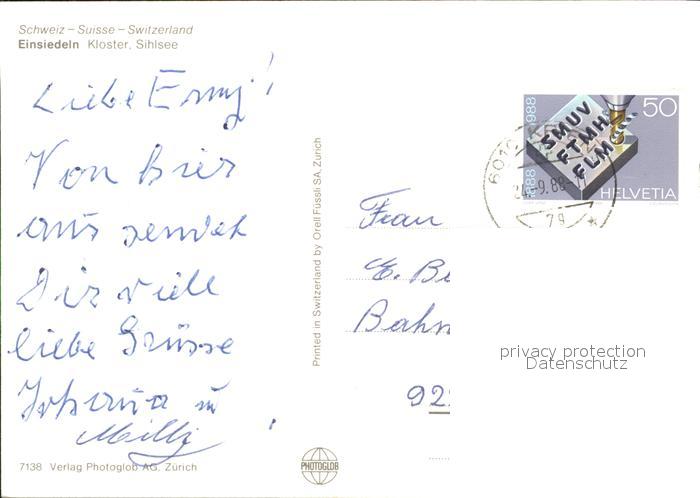 Schweiz – Suisse – Switzerland
Einsiedeln Kloster, Sihlsee
Liebe Erny!
Von hier
aus sendet
Dir viele
liebe Grüsse
Johanna u
Milly
!
7138 Verlag Photoglob AG, Zürich
Printed in Switzerland by Orell Füssli SA, Zürich
PHOTOGLOB
1888 1988
50
SMUV
FTMH
FLM
HELVETIA
6010 K
9.88
Frau
E. Be
Bahn
92
privacy protection
Datenschutz